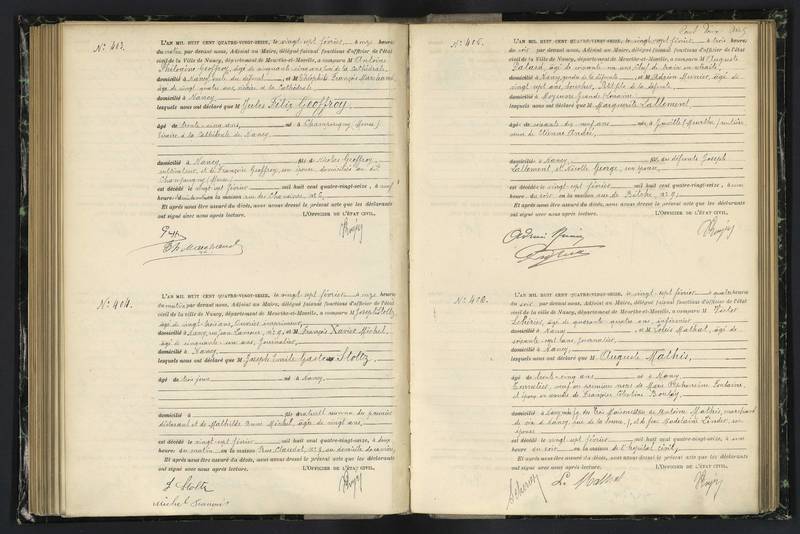 N° 403.
L'AN MIL HUIT CENT QUATRE-VINGT-SEIZE, le vingt-sept février à onze heures
du matin par devant nous, Adjoint au Maire, délégué faisant fonctions d'officier de l'état
civil de la Ville de Nancy, département de Meurthe-et-Moselle, a comparu M Antoine
Geoffroy, âgé de cinquante
domicilié à Nancy, et M Théophile François Marchand
âgé de vingt quatre ans, de la Cathédrale
domicilié à Nancy
lesquels nous ont déclaré que M Jules Félix Geoffroy,
âgé de trente-cinq ans né à Champougny (Meuse)
vicaire à la Cathédrale de Nancy
domicilié à Nancy fils de Nicolas Geoffroy
cultivateur, et de Françoise Geoffroy, son épouse, domiciliés au dit
Champougny (Meuse)
est décédé le vingt sept février mil huit cent quatre-vingt-seize, à
heure en la maison rue des Chanoines, n°
Et après nous être assuré du décès, nous avons dressé le présent acte que les déclarants
ont signé avec nous après lecture. L'OFFICIER DE L'ÉTAT CIVIL,
Th Marchand
N° 404.
L'AN MIL HUIT CENT QUATRE-VINGT-SEIZE, le vingt-sept février à onze heures
du matin par devant nous, Adjoint au Maire, délégué faisant fonctions d'officier de l'état
civil de la Ville de Nancy, département de Meurthe-et-Moselle, a comparu M Joseph Stoltz
âgé de vingt trois ans, ouvrier
domicilié à Nancy, et M François Xavier Michel,
âgé de cinquante un ans, journalier
domicilié à Nancy
lesquels nous ont déclaré que M Joseph Emile Gaston Stoltz
âgé de trois jours né à Nancy
domicilié à fils naturel reconnu du premier
déclarant et de Mathilde Anne Michel, âgée de vingt ans,
est décédé le vingt sept février mil huit cent quatre-vingt-seize, à deux
heures du matin en la maison Rue Claudot, n° 9, au domicile de sa mère
Et après nous être assuré du décès, nous avons dressé le présent acte que les déclarants
ont signé avec nous après lecture. L'OFFICIER DE L'ÉTAT CIVIL,
J Stoltz
Michel François
N° 405.
L'AN MIL HUIT CENT QUATRE-VINGT-SEIZE, le vingt-sept février à trois heures
du soir par devant nous, Adjoint au Maire, délégué faisant fonctions d'officier de l'état
civil de la Ville de Nancy, département de Meurthe-et-Moselle, a comparu M Auguste
âgé de soixante un ans, chef de train en retraite
domicilié à Nancy, gendre de la défunte et M Adrien Munier, âgé de
vingt sept ans, boucher, Petit fils de la défunte
domicilié à Moyeuvre Grande Lorraine
lesquels nous ont déclaré que M Marguerite Lallement
âgée de soixante dix neuf ans née à
veuve de Etienne André
domiciliée à Nancy fille des défunts Joseph
Lallement et Nicolle George, son épouse
est décédée le vingt sept février mil huit cent quatre-vingt-seize, à une
heure du soir en la maison rue de Bitche, n° 9
Et après nous être assuré du décès, nous avons dressé le présent acte que les déclarants
ont signé avec nous après lecture. L'OFFICIER DE L'ÉTAT CIVIL,
N° 406.
L'AN MIL HUIT CENT QUATRE-VINGT-SEIZE, le vingt-sept février à quatre heures
du soir par devant nous, Adjoint au Maire, délégué faisant fonctions d'officier de l'état
civil de la Ville de Nancy, département de Meurthe-et-Moselle, a comparu M Victor
âgé de quarante quatre ans, infirmier
domicilié à Nancy et M Louis Mathal, âgé de
soixante-sept ans, journalier
domicilié à Nancy
lesquels nous ont déclaré que M Auguste Mathis,
âgé de trente-cinq ans né à Nancy
veuf en premières noces de Marie
et époux en secondes de Françoise Célestine Boulay
domicilié à Nancy, fils de Antoine Mathis, marchand
de vin à Nancy, et de feue Madelaine Linder, son
épouse
est décédé le vingt sept février mil huit cent quatre-vingt-seize, à une
heure du soir en la maison de l'hôpital civil
Et après nous être assuré du décès, nous avons dressé le présent acte que les déclarants
ont signé avec nous après lecture. L'OFFICIER DE L'ÉTAT CIVIL,
L. Mathal